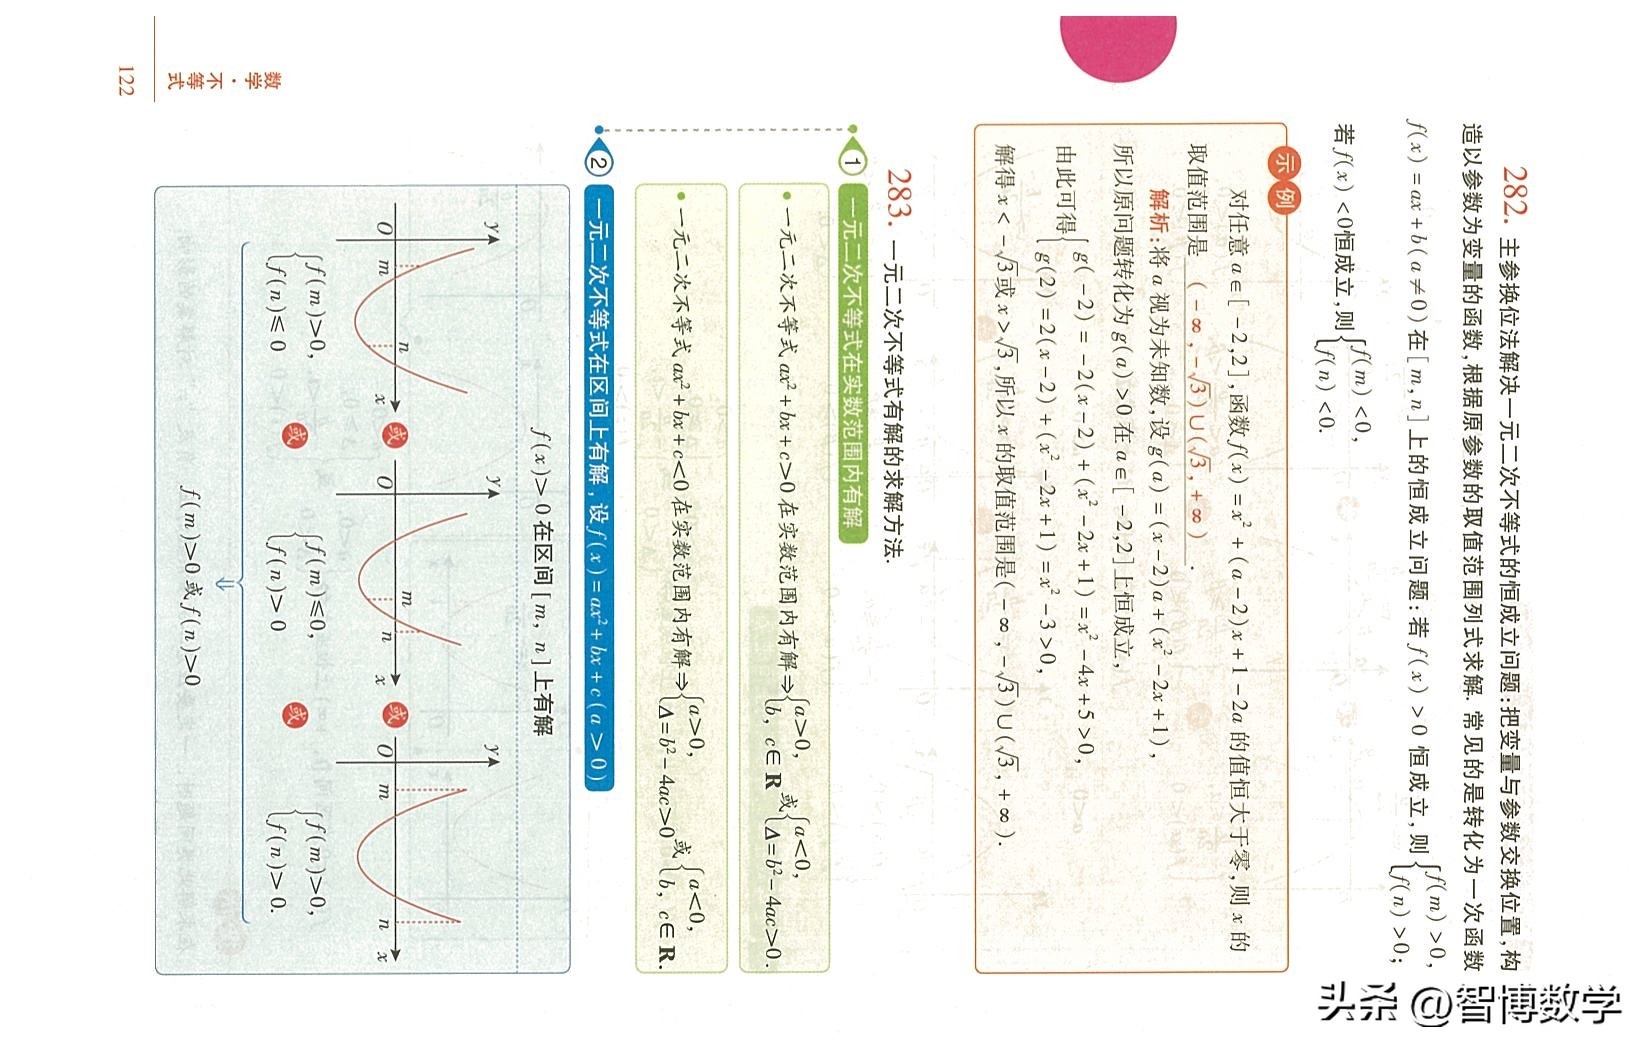 282. 主参换位法解决一元二次不等式的恒成立问题:把变量与参数交换位置,构
造以参数为变量的函数,根据原参数的取值范围列式求解.常见的是转化为一次函数
f(x)=ax+b(a≠0)在[m,n]上的恒成立问题:若f(x)>0恒成立,则{f(m)>0, f(n)>0;
若f(x)<0恒成立,则{f(m)<0, f(n)<0.
示例
对任意a∈[-2,2],函数f(x)=x²+(a-2)x+1-2a的值恒大于零,则x的
取值范围是 (-∞,-√3)∪(√3,+∞) .
解析:将a视为未知数,设g(a)=(x-2)a+(x²-2x+1),
所以原问题转化为g(a)>0在a∈[-2,2]上恒成立,
由此可得{g(-2)=-2(x-2)+(x²-2x+1)=x²-4x+5>0,
g(2)=2(x-2)+(x²-2x+1)=x²-3>0,
解得x<-√3或x>√3,所以x的取值范围是(-∞,-√3)∪(√3,+∞).
283. 一元二次不等式有解的求解方法.
1 一元二次不等式在实数范围内有解
• 一元二次不等式ax²+bx+c>0在实数范围内有解⇒{a>0, b, c∈R 或{a<0, Δ=b²-4ac>0.
• 一元二次不等式ax²+bx+c<0在实数范围内有解⇒{a>0, Δ=b²-4ac>0 或{a<0, b, c∈R.
2 一元二次不等式在区间上有解,设f(x)=ax²+bx+c(a>0)
f(x)>0在区间[m, n]上有解
y
O m n x
或
y
O m n x
或
y
O m n x
{f(m)>0, f(n)≤0
或
{f(m)≤0, f(n)>0
或
{f(m)>0, f(n)>0.
⇓
f(m)>0或f(n)>0
数学·不等式
122
头条 @智博数学